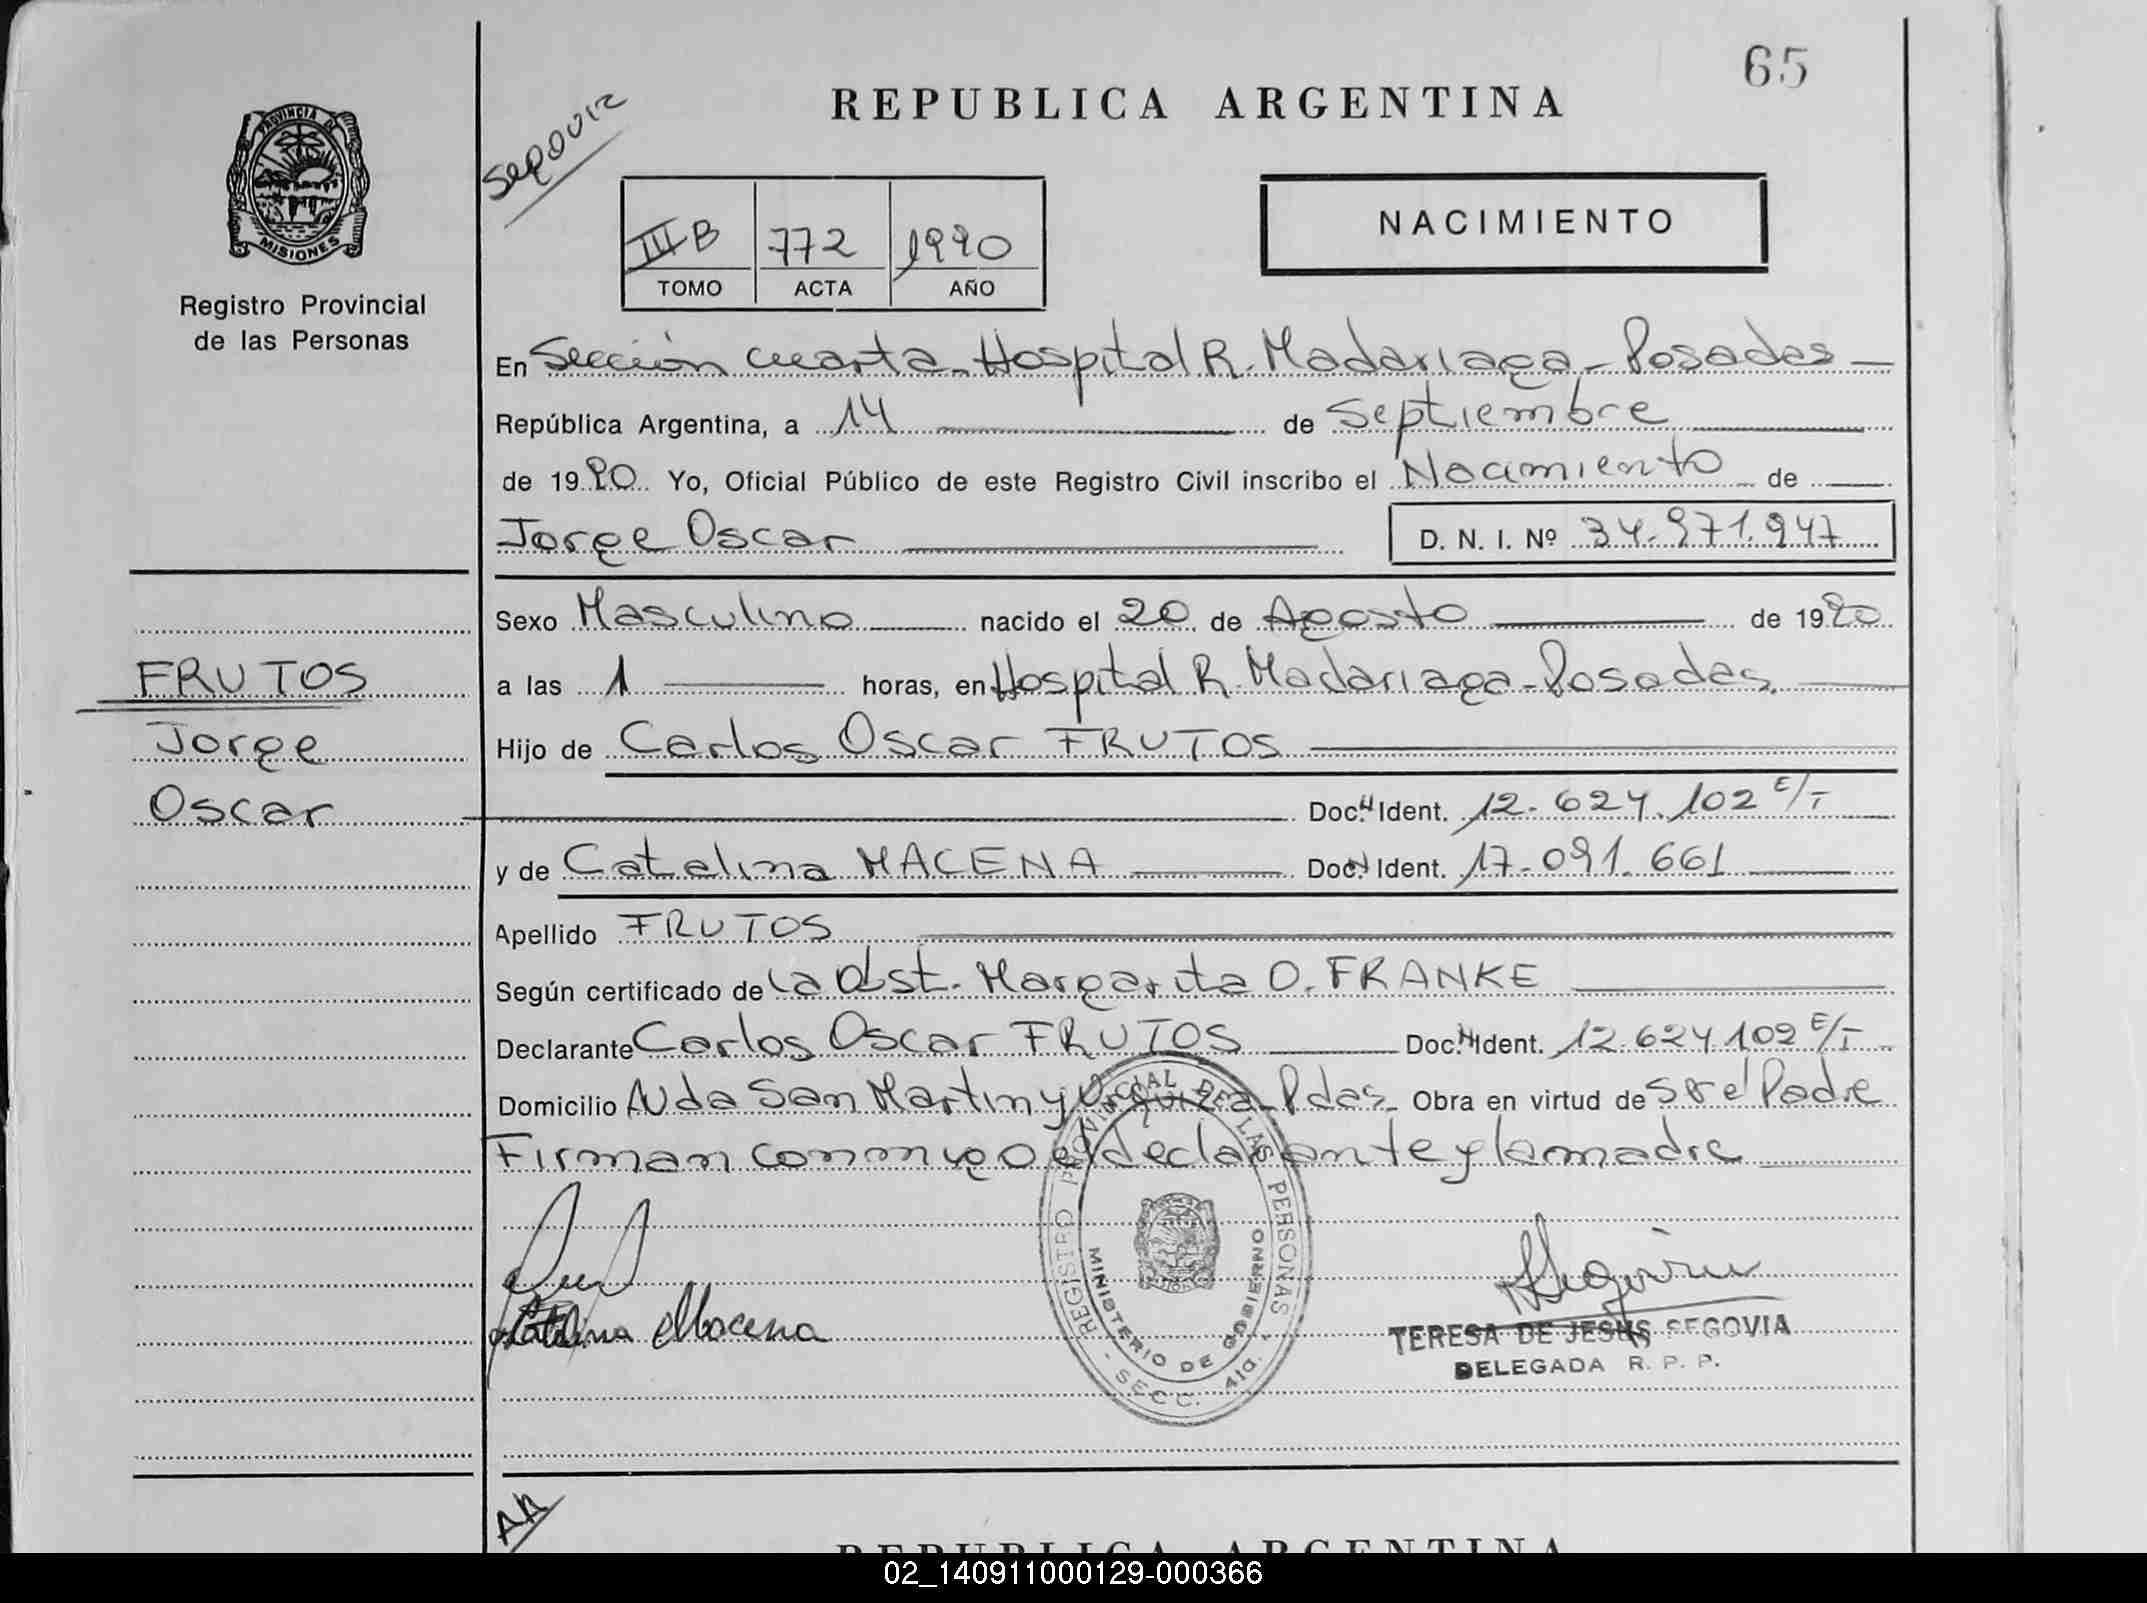 65
REPUBLICA ARGENTINA
Segovia
PROVINCIA DE
MISIONES
Registro Provincial
de las Personas
III B 772 1990
TOMO ACTA AÑO
NACIMIENTO
En Sección cuarta - Hospital R. Madariaga - Posadas
República Argentina, a 14 de Septiembre
de 1990 Yo, Oficial Público de este Registro Civil inscribo el Nacimiento de
Jorge Oscar D. N. I. Nº 34.971.947
Sexo Masculino nacido el 20 de Agosto de 1990
a las 1 horas, en Hospital R. Madariaga - Posadas.
Hijo de Carlos Oscar FRUTOS
Doc. N Ident. 12.624.102 E/T
y de Catalina MACENA Doc. N Ident. 17.091.661
Apellido FRUTOS
Según certificado de la Obst. Margarita O. FRANKE
Declarante Carlos Oscar FRUTOS Doc. N Ident. 12.624.102 E/T
Domicilio Avda San Martin y - Pdas - Obra en virtud de ser el Padre
Firman conmigo el declarante y la madre
FRUTOS
Jorge
Oscar
Catalina Macena
REGISTRO PROVINCIAL DE LAS PERSONAS
MINISTERIO DE GOBIERNO
- SECC. 4ta. -
TERESA DE JESUS SEGOVIA
DELEGADA R. P. P.
AA
REPUBLICA ARGENTINA
02_140911000129-000366